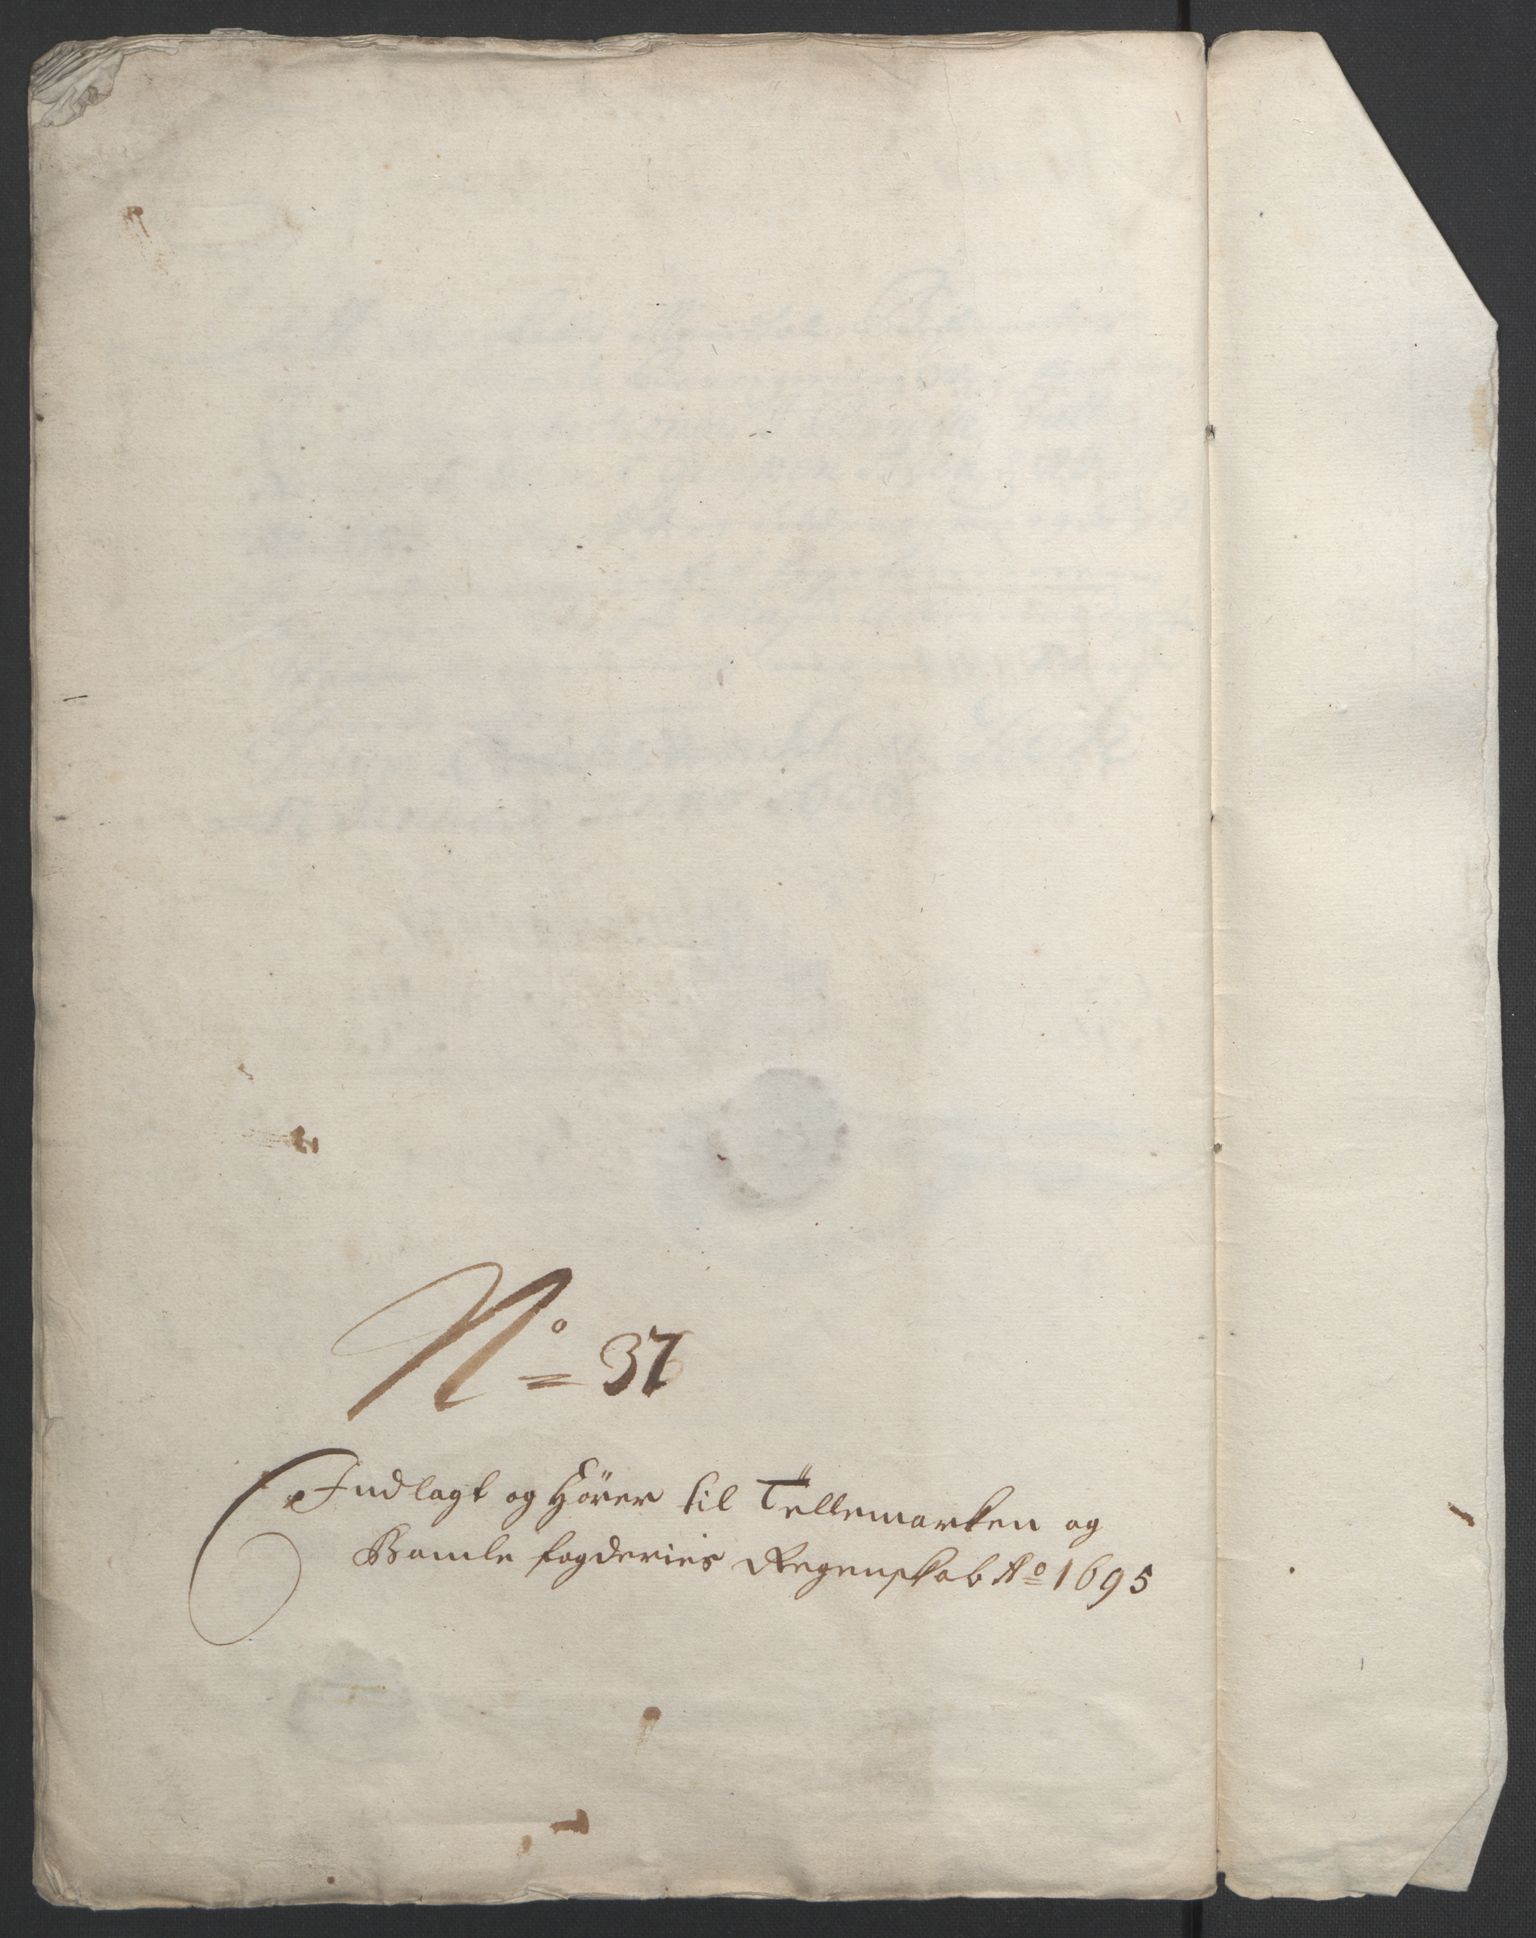 No = 37
Indlagt og Hörer til Tellemarken og
Bamle fogderies Regenskab Ao 1695